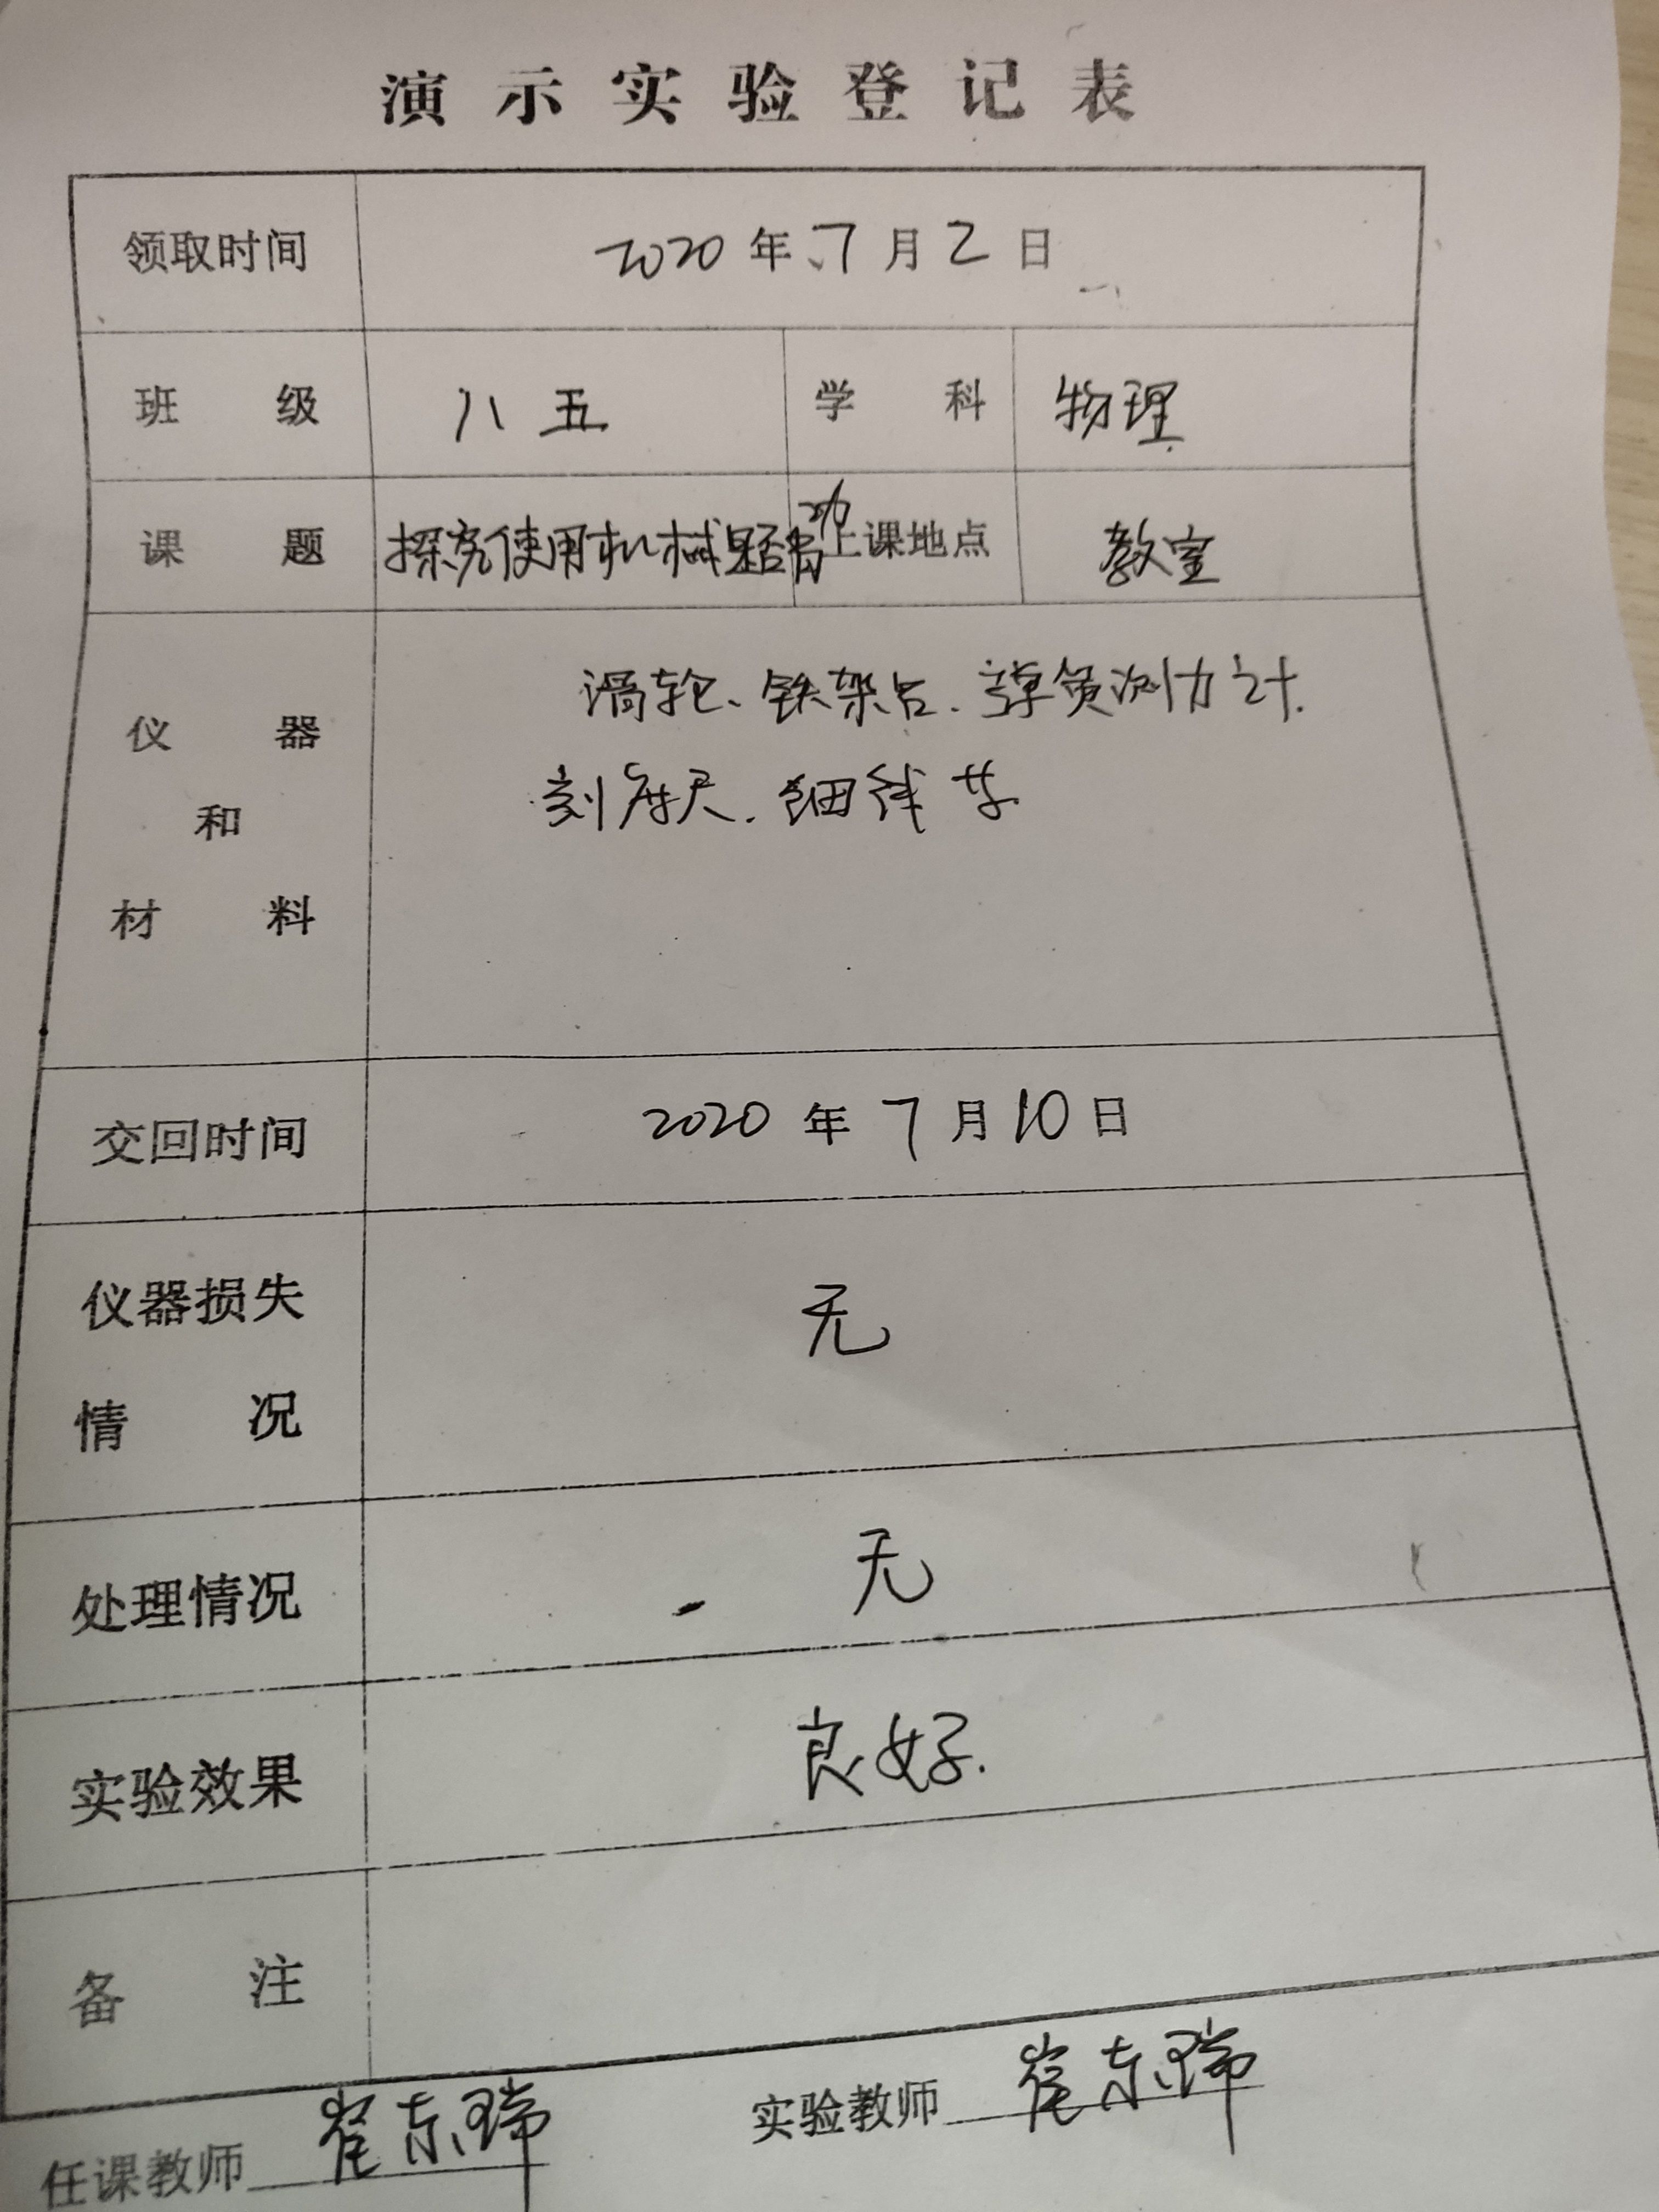 演示实验登记表
领取时间 2020年7月2日
班级 八五 学科 物理
课题 探究使用机械是否省功 上课地点 教室
仪器和材料 滑轮、铁架台、弹簧测力计
刻度尺、细线等
交回时间 2020年7月10日
仪器损失情况 无
处理情况 无
实验效果 良好.
备注
任课教师 崔东瑞 实验教师 崔东瑞